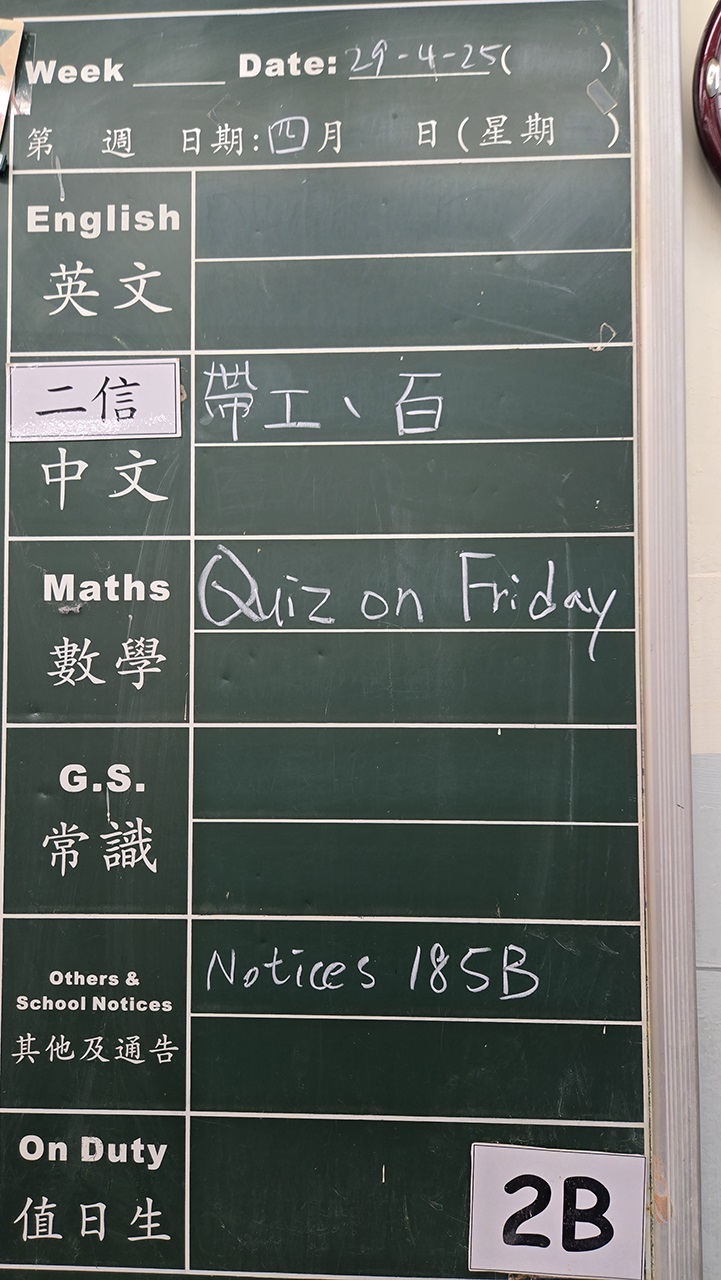 Week ____ Date: 29-4-25( )
第 週 日期:四月 日(星期 )
English
英文
二信 帶工、百
中文
Maths Quiz on Friday
數學
G.S.
常識
Others & School Notices Notices 185B
其他及通告
On Duty
值日生
2B